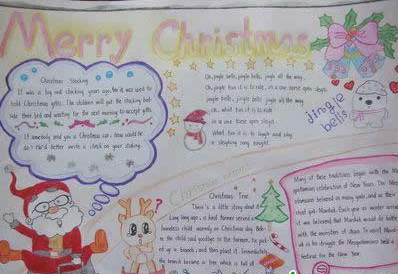 Merry Christmas
Christmas Stocking
It was a big red stocking years ago. An it was used to
hold Christmas gifts. The children will put the stocking bet-
side their bed and waiting for the next morning to accept gifts.
If somebody send you a Christmas car, how would he
do? He'd better write a check on your stocking.
Oh, jingle bells, jingle bells, jingle all the way.
Oh, what fun it is to ride, in a one horse open sleigh
jingle bells, jingle bells, jingle all the way.
Oh, what fun it is to ride
in a one horse open sleigh.
What fun it is to laugh and sing
a sleighing song tonight.
jingle
bells
Christmas customs
Christmas Tree
There is a little story about it.
Long long ago, a kind farmer served a
homeless child warmly on Christmas day. Befo-
re the child said goodbye to the farmer, he put
ed up a branch, and then placed it. Immediately
the branch became a tree which is full of
Many of these traditions began with the Me
opotamian celebration of New Years. The Mes
otamians believed in many gods, and as their
chief god Marduk. Each year as winter arrived
it was believed that Marduk would do battle
with the monsters of chaos. To assist Marduk
in his struggle the Mesopotamians held a
festival for the New Year.